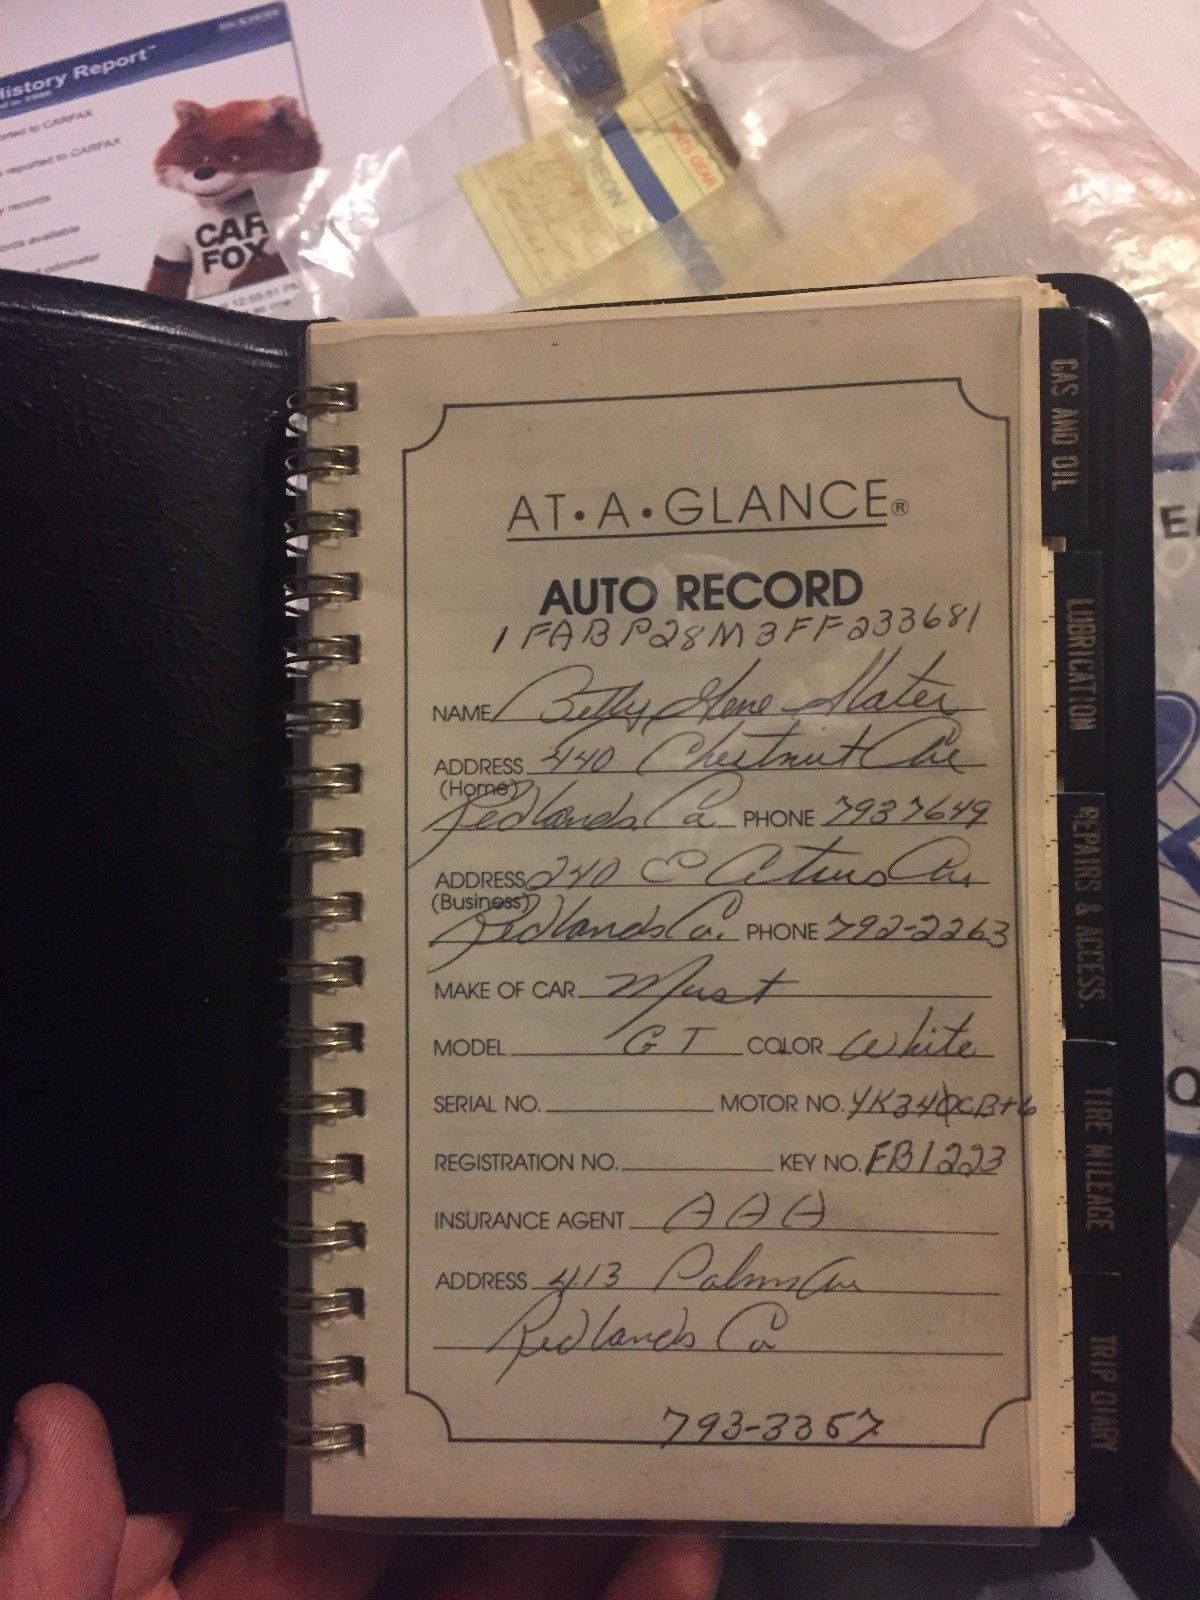 History Report™
reported to CARFAX
reported to CARFAX
records
records available
odometer
CAR
FOX
AT•A•GLANCE®
AUTO RECORD
1FABP28M3FF233681
NAME Betty Gene Slater
ADDRESS 440 Chestnut Ave
(Home)
Redlands Ca PHONE 7937649
ADDRESS 240 E Citrus Ave
(Business)
Redlands Ca. PHONE 792-2263
MAKE OF CAR Must
MODEL GT COLOR White
SERIAL NO. MOTOR NO.
REGISTRATION NO. KEY NO. FB1223
INSURANCE AGENT AAA
ADDRESS 413 Palm Ave
Redlands Ca
793-3357
GAS AND OIL
LUBRICATION
REPAIRS & ACCESS.
TIRE MILEAGE
TRIP DIARY